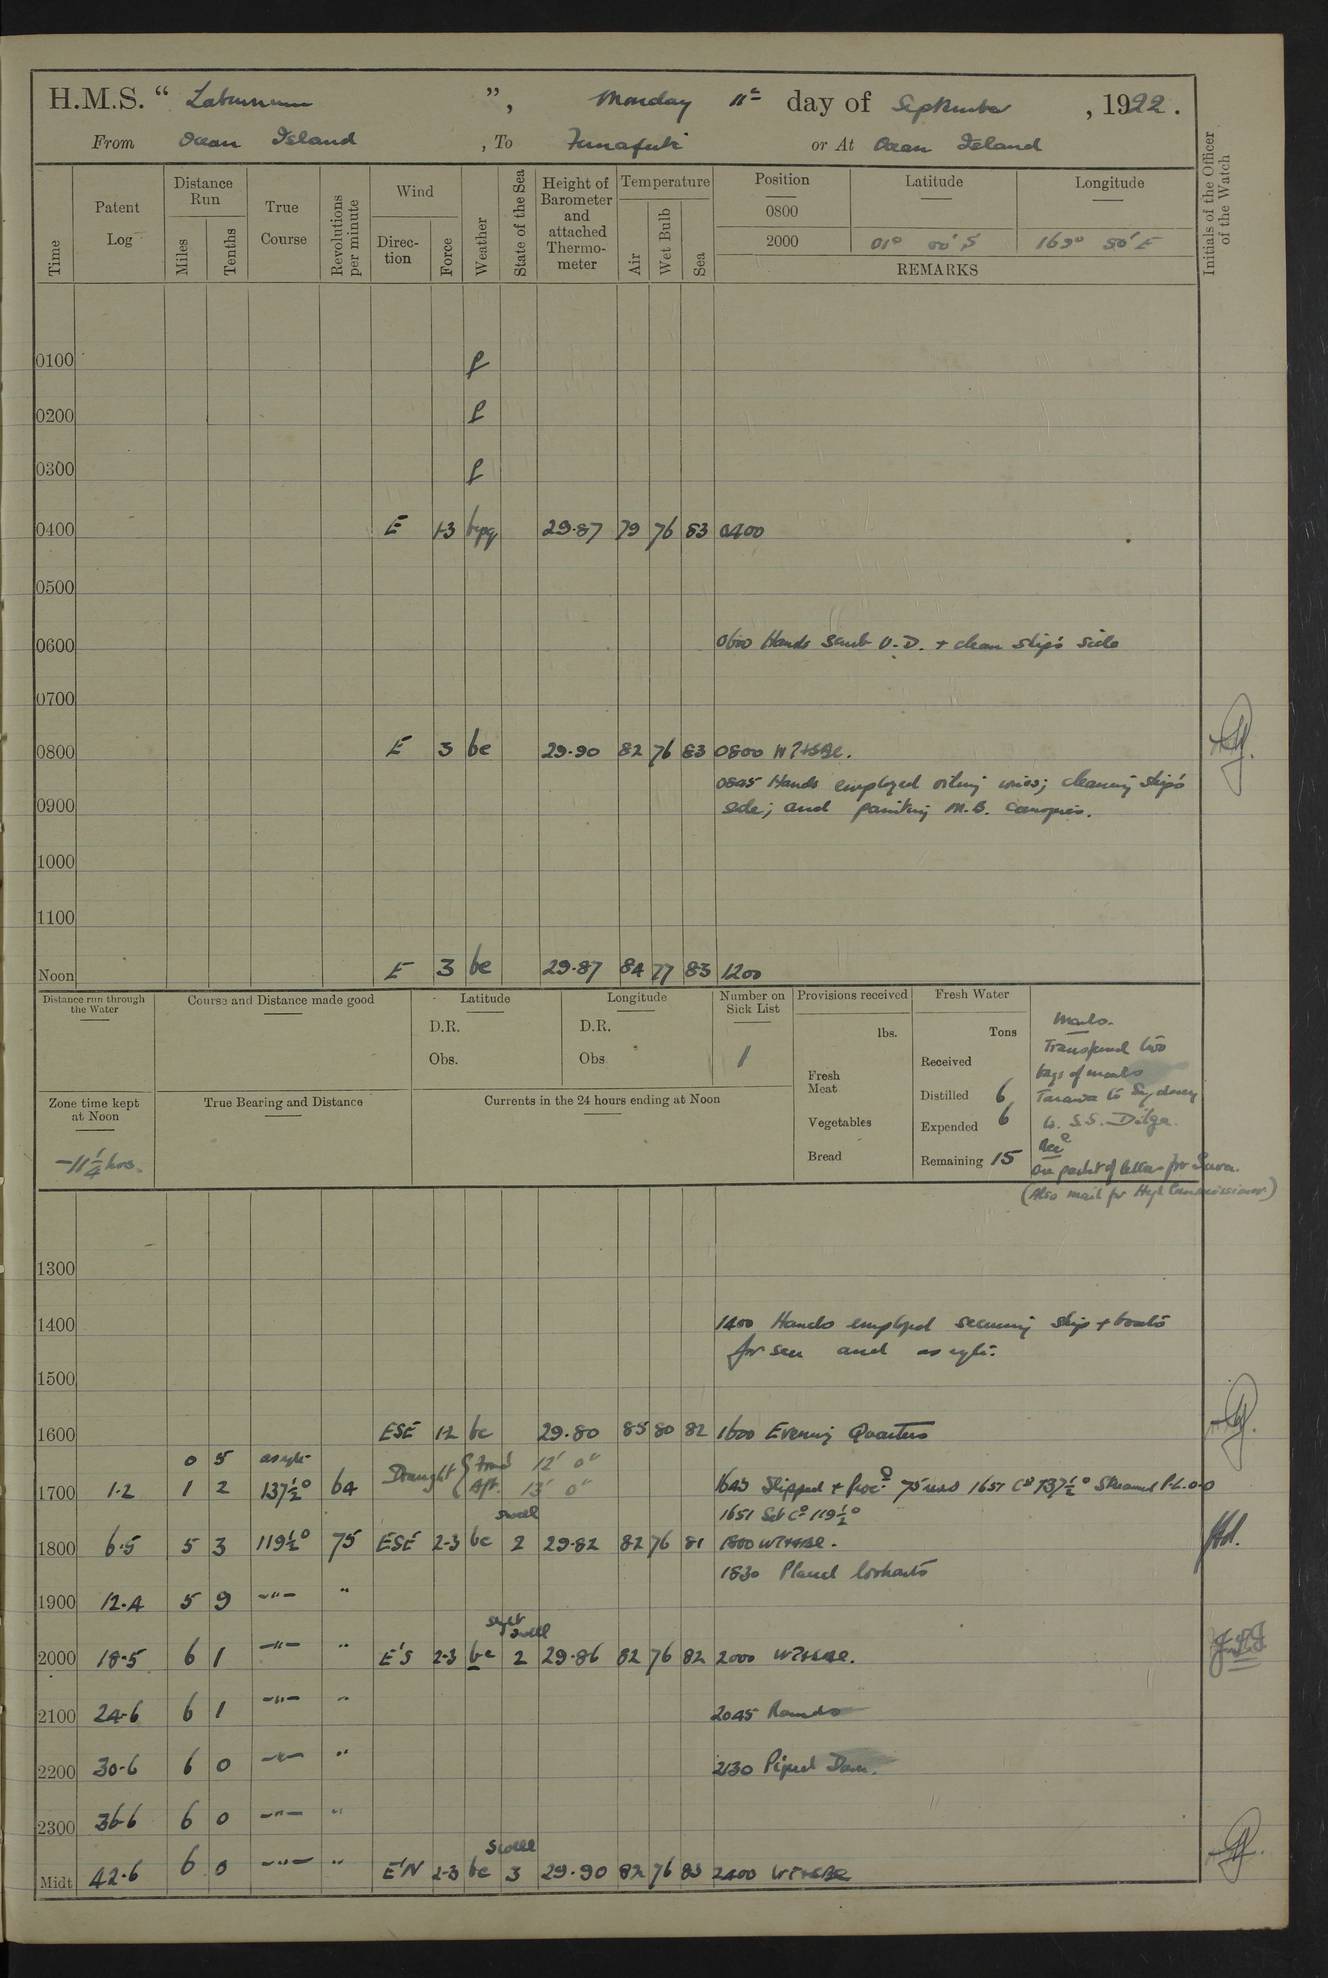 H.M.S. “ Laburnum ”, Monday 11th day of September , 1922 .
From Ocean Island , To Funafuti or At Ocean Island
Time Patent Log Distance Run Miles Tenths True Course Revolutions per minute Wind Direction Force Weather State of the Sea Height of Barometer and attached Thermometer Temperature Air Wet Bulb Sea Position Latitude Longitude Initials of the Officer of the Watch
0800
2000 01° 00' S 169° 50' E
REMARKS
0100
0200
0300
0400 E 1-3 bcpq 29.87 79 76 83 0400
0500
0600 0600 Hands scrub U.D. + clean ship's side
0700
0800 E 3 bc 29.90 82 76 83 0800
0845 Hands employed oiling wires; cleaning ship's
0900 side; and painting M.B. canopies.
1000
1100
Noon E 3 bc 29.87 84 77 83 1200
Distance run through the Water Course and Distance made good Latitude Longitude Number on Sick List Provisions received Fresh Water
D.R. D.R. lbs. Tons
Obs. Obs 1
Fresh Meat
Vegetables
Bread
Received
Distilled 6
Expended 6
Remaining 15
Mails.
Transferred two
bags of mails
Tarawa to Sydney
to S.S. Ditga.
Recd
One packet of letters for Suva.
(Also mail for High Commissioner)
Zone time kept at Noon True Bearing and Distance Currents in the 24 hours ending at Noon
-11½ hrs.
1300
1400 1400 Hands employed securing ship + boats
for sea and as reqte.
1500
1600 ESE 1-2 bc 29.80 85 80 82 1600 Evening Quarters
0 5 Draught { For'd 12' 0"
Aft. 13' 0"
1700 1.2 1 2 137½° 64 1643 Slipped + Proc. 75 revs 1651 Co 137½° Streamed P.L. 0.0
1651 S/Co 119½°
swell
1800 6.5 5 3 119½° 75 ESE 2-3 bc 2 29.82 82 76 81 1800
1830 Placed lookouts
1900 12.4 5 9 -"- "
slight swell
2000 18.5 6 1 -"- " E'S 2-3 bc 2 29.86 82 76 82 2000
2100 24.6 6 1 -"- " 2045 Rounds
2200 30.6 6 0 -"- " 2130 Piped Down.
2300 36.6 6 0 -"- "
swell
Midt 42.6 6 0 -"- " E'N 2-3 bc 3 29.90 82 76 83 2400